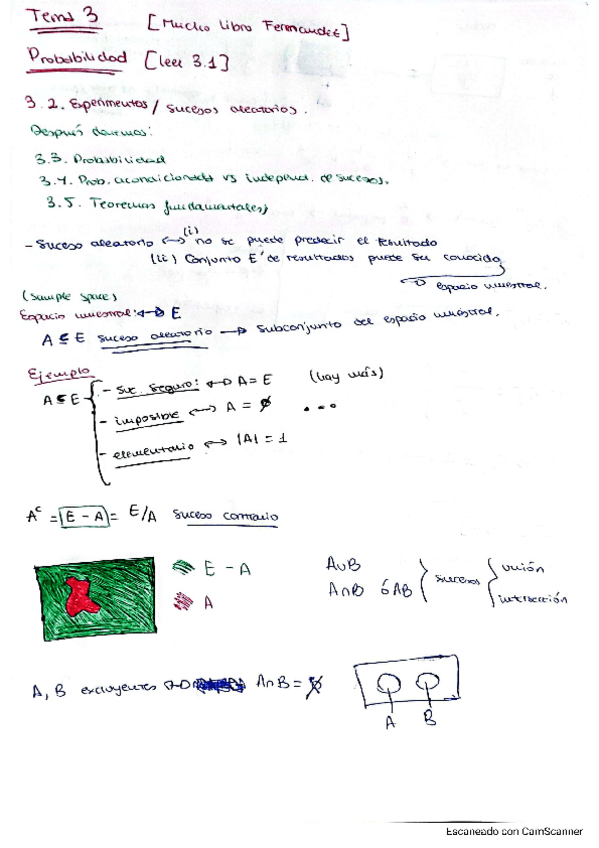 Tema 3 [Mucho libro Fernandez]
Probabilidad [leer 3.1]
3.2. Experimentos / sucesos aleatorios.
Después daremos:
3.3. Probabilidad
3.4. Prob. condicionada vs independ. de sucesos.
3.5. Teoremas fundamentales
- Suceso aleatorio ↔ (i) no se puede predecir el resultado
(ii) Conjunto E de resultados puede ser conocido
→ espacio muestral.
(sample space)
Espacio muestral: ↔ E
A ⊆ E suceso aleatorio → subconjunto del espacio muestral.
Ejemplo
A ⊆ E { - suc. seguro: ↔ A = E (hay más)
- imposible ↔ A = ∅ ...
- elementario ↔ |A| = 1
Aᶜ = E - A = E/A suceso contrario
E - A
A
A∪B
A∩B ó AB } sucesos { unión
intersección
A, B excluyentes ↔ A∩B = ∅
A B
Escaneado con CamScanner